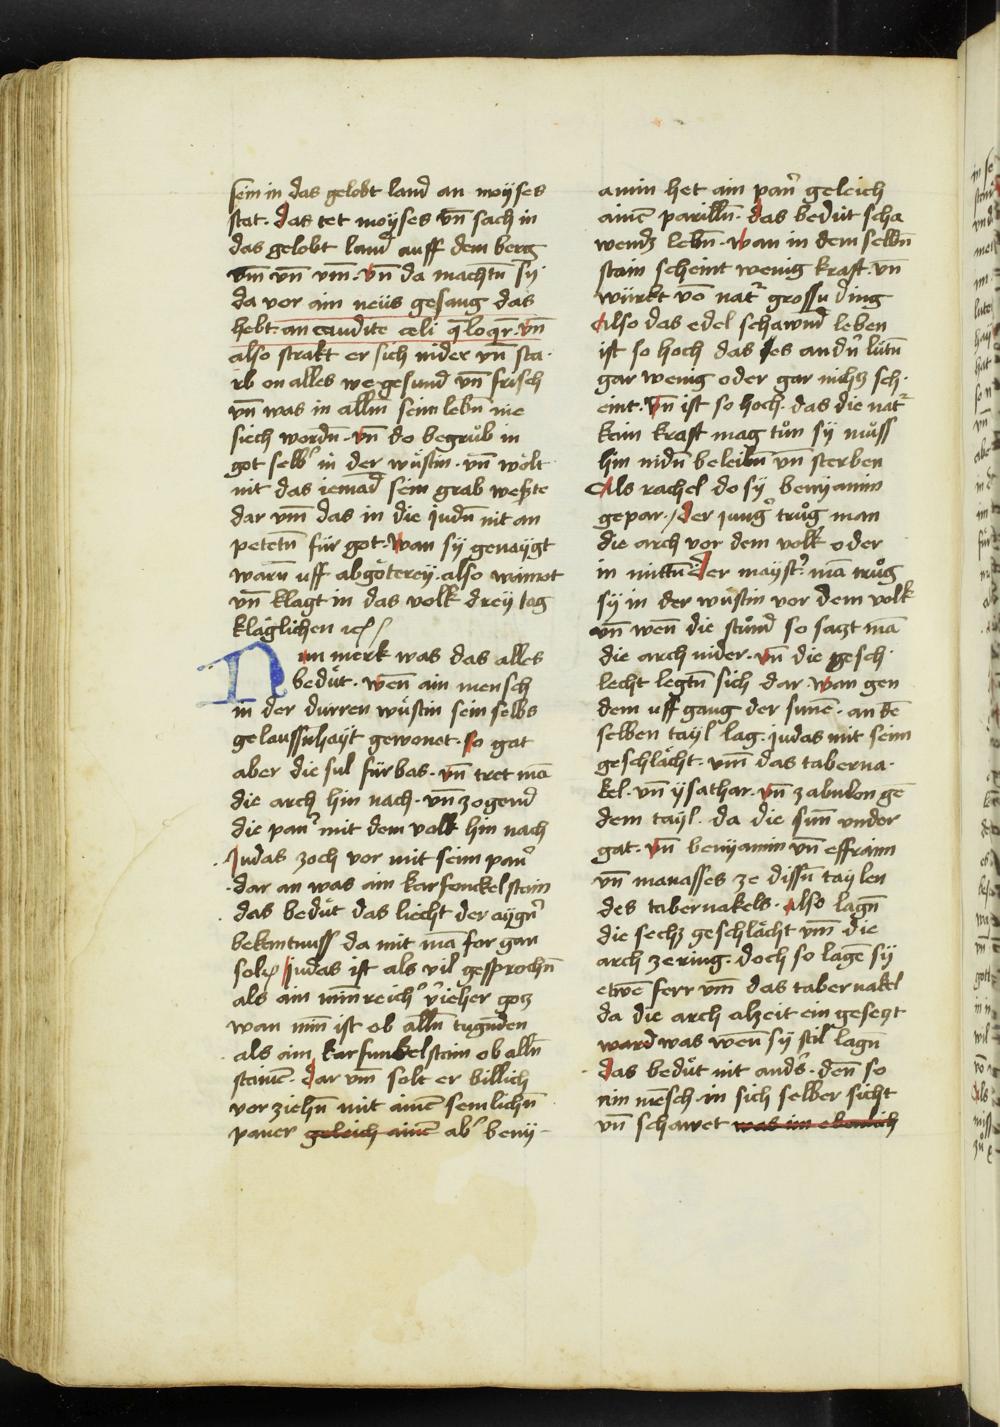 sein in das gelobt land an moÿses
stat. das tet moÿses vn̄ sach in
das gelobt land auff dem berg
vm̄ vn̄ vm̄. vn̄ da machtn sÿ
da vor ain neüs gesang das
hebt an audite celi q̄ loqr̄. vn̄
also strakt er sich nider vn̄ sta-
rb on alles we gesund vn̄ frisch
vn̄ was in allm̄ seim lebn̄ nie
siech wordn̄. vn̄ do begrůb in
got selb' in der wüstin. vn̄ wolt
nit das iemad̄ sein grab weste
dar vm̄ das in die judn̄ nit an
petetn̄ für got. wan sÿ genaÿgt
warn̄ uff abgötereÿ. also wainot
vn̄ klagt in das volk dreÿ tag
kläglichen
Nun merk was das alles
bedüt. wen̄ ain mensch
in der durren wüstin sein selbs
gelassnhaÿt gewonet. so gat
aber die sul fürbas. vn̄ tret mā
die arch hin nach. vn̄ zogend
die pan' mit dem volk hin nach
Judas zoch vor mit seim pan'
dar an was ain karfonckelstain
das bedüt das liecht der aÿgn̄
bekentnuss da mit mā for gan
sol Judas ist als vil gesprochn̄
als ain min̄reich' v'ieher gotz
wan min̄ ist ob alln̄ tugnden
als ain karfunkelstain ob alln̄
stainē. dar vm̄ solt er billich
vor ziehn̄ mit ainē semlichn̄
paner geleich ainē ab' benÿ-
amin het ain pan' geleich
ainē parilln̄. das bedüt scha
wendz lebn̄. wan in dem selbn̄
stain scheint wenig kraft. vn̄
würkt vō nat' grossu ding
Also das edel schawnd leben
ist so hoch das es andn̄ lütn̄
gar wenig oder gar nichz sch-
eint. vn̄ ist so hoch. das die nat'
kain kraft mag tůn sÿ můss
hin nidn̄ beleibn̄ vn̄ sterben
Als rachel do sÿ benÿamin
gepar. der jung' trůg man
die arch vor dem volk oder
in mittn̄ der maÿst' mā trůg
sÿ in der wüstin vor dem volk
vn̄ wen̄ die stůnd so sazt mā
die arch nider. vn̄ die gesch-
lecht legtn̄ sich dar. wan gen
dem uff gang der sunē. an dē
selben taÿl lag. judas mit seim
geschlächt. vm̄ das taberna-
kel. vn̄ ÿsathar. vn̄ zabulon gē
dem taÿl. da die sun̄ vnder
gat. vn̄ benÿamin vn̄ effraim
vn̄ manasses ze dissn̄ taÿlen
des tabernakels. Also lagn̄
die sechz geschlächt vm̄ die
arch ze ring. doch so lagē sÿ
etwē ferr vm̄ das tabernakel
da die arch alzeit ein gesetzt
ward was wen̄ sÿ stil lagn̄
das bedüt nit and's. den̄ so
ain mēsch in sich selber sicht
vn̄ schawet was im